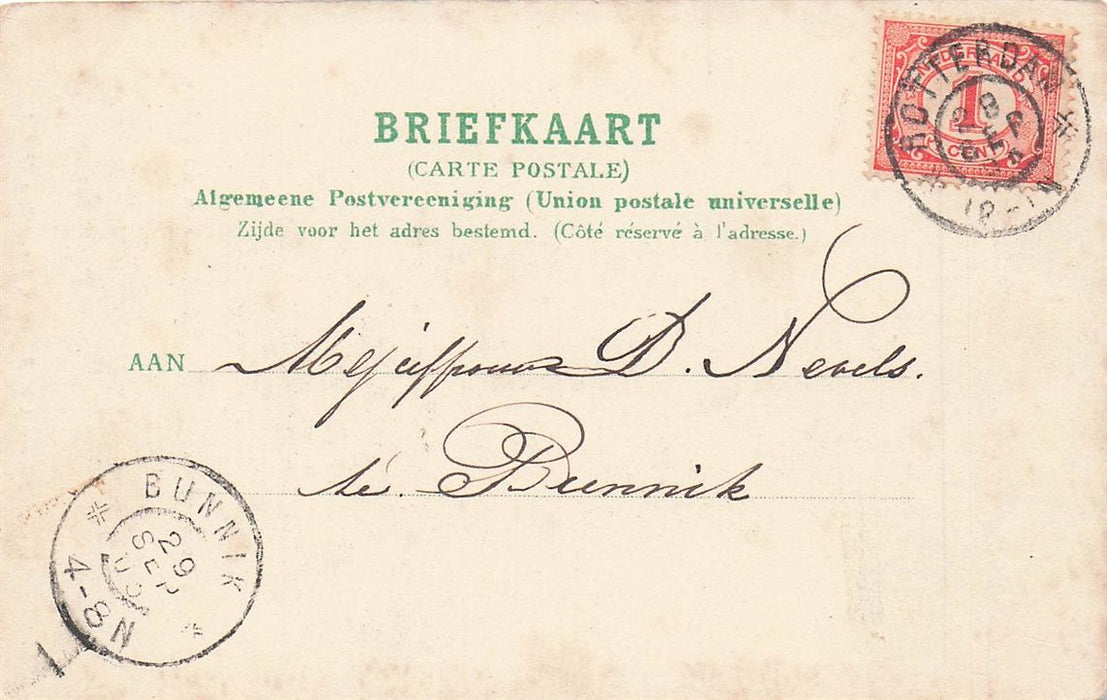 BRIEFKAART
(CARTE POSTALE)
Algemeene Postvereeniging (Union postale universelle)
Zijde voor het adres bestemd. (Côté réservé à l'adresse.)
NEDERLAND
1
CENT
ROTTERDAM
AAN Mejuffrouw D. Nevels.
te Bunnik
BUNNIK
29
SEP
4-8N